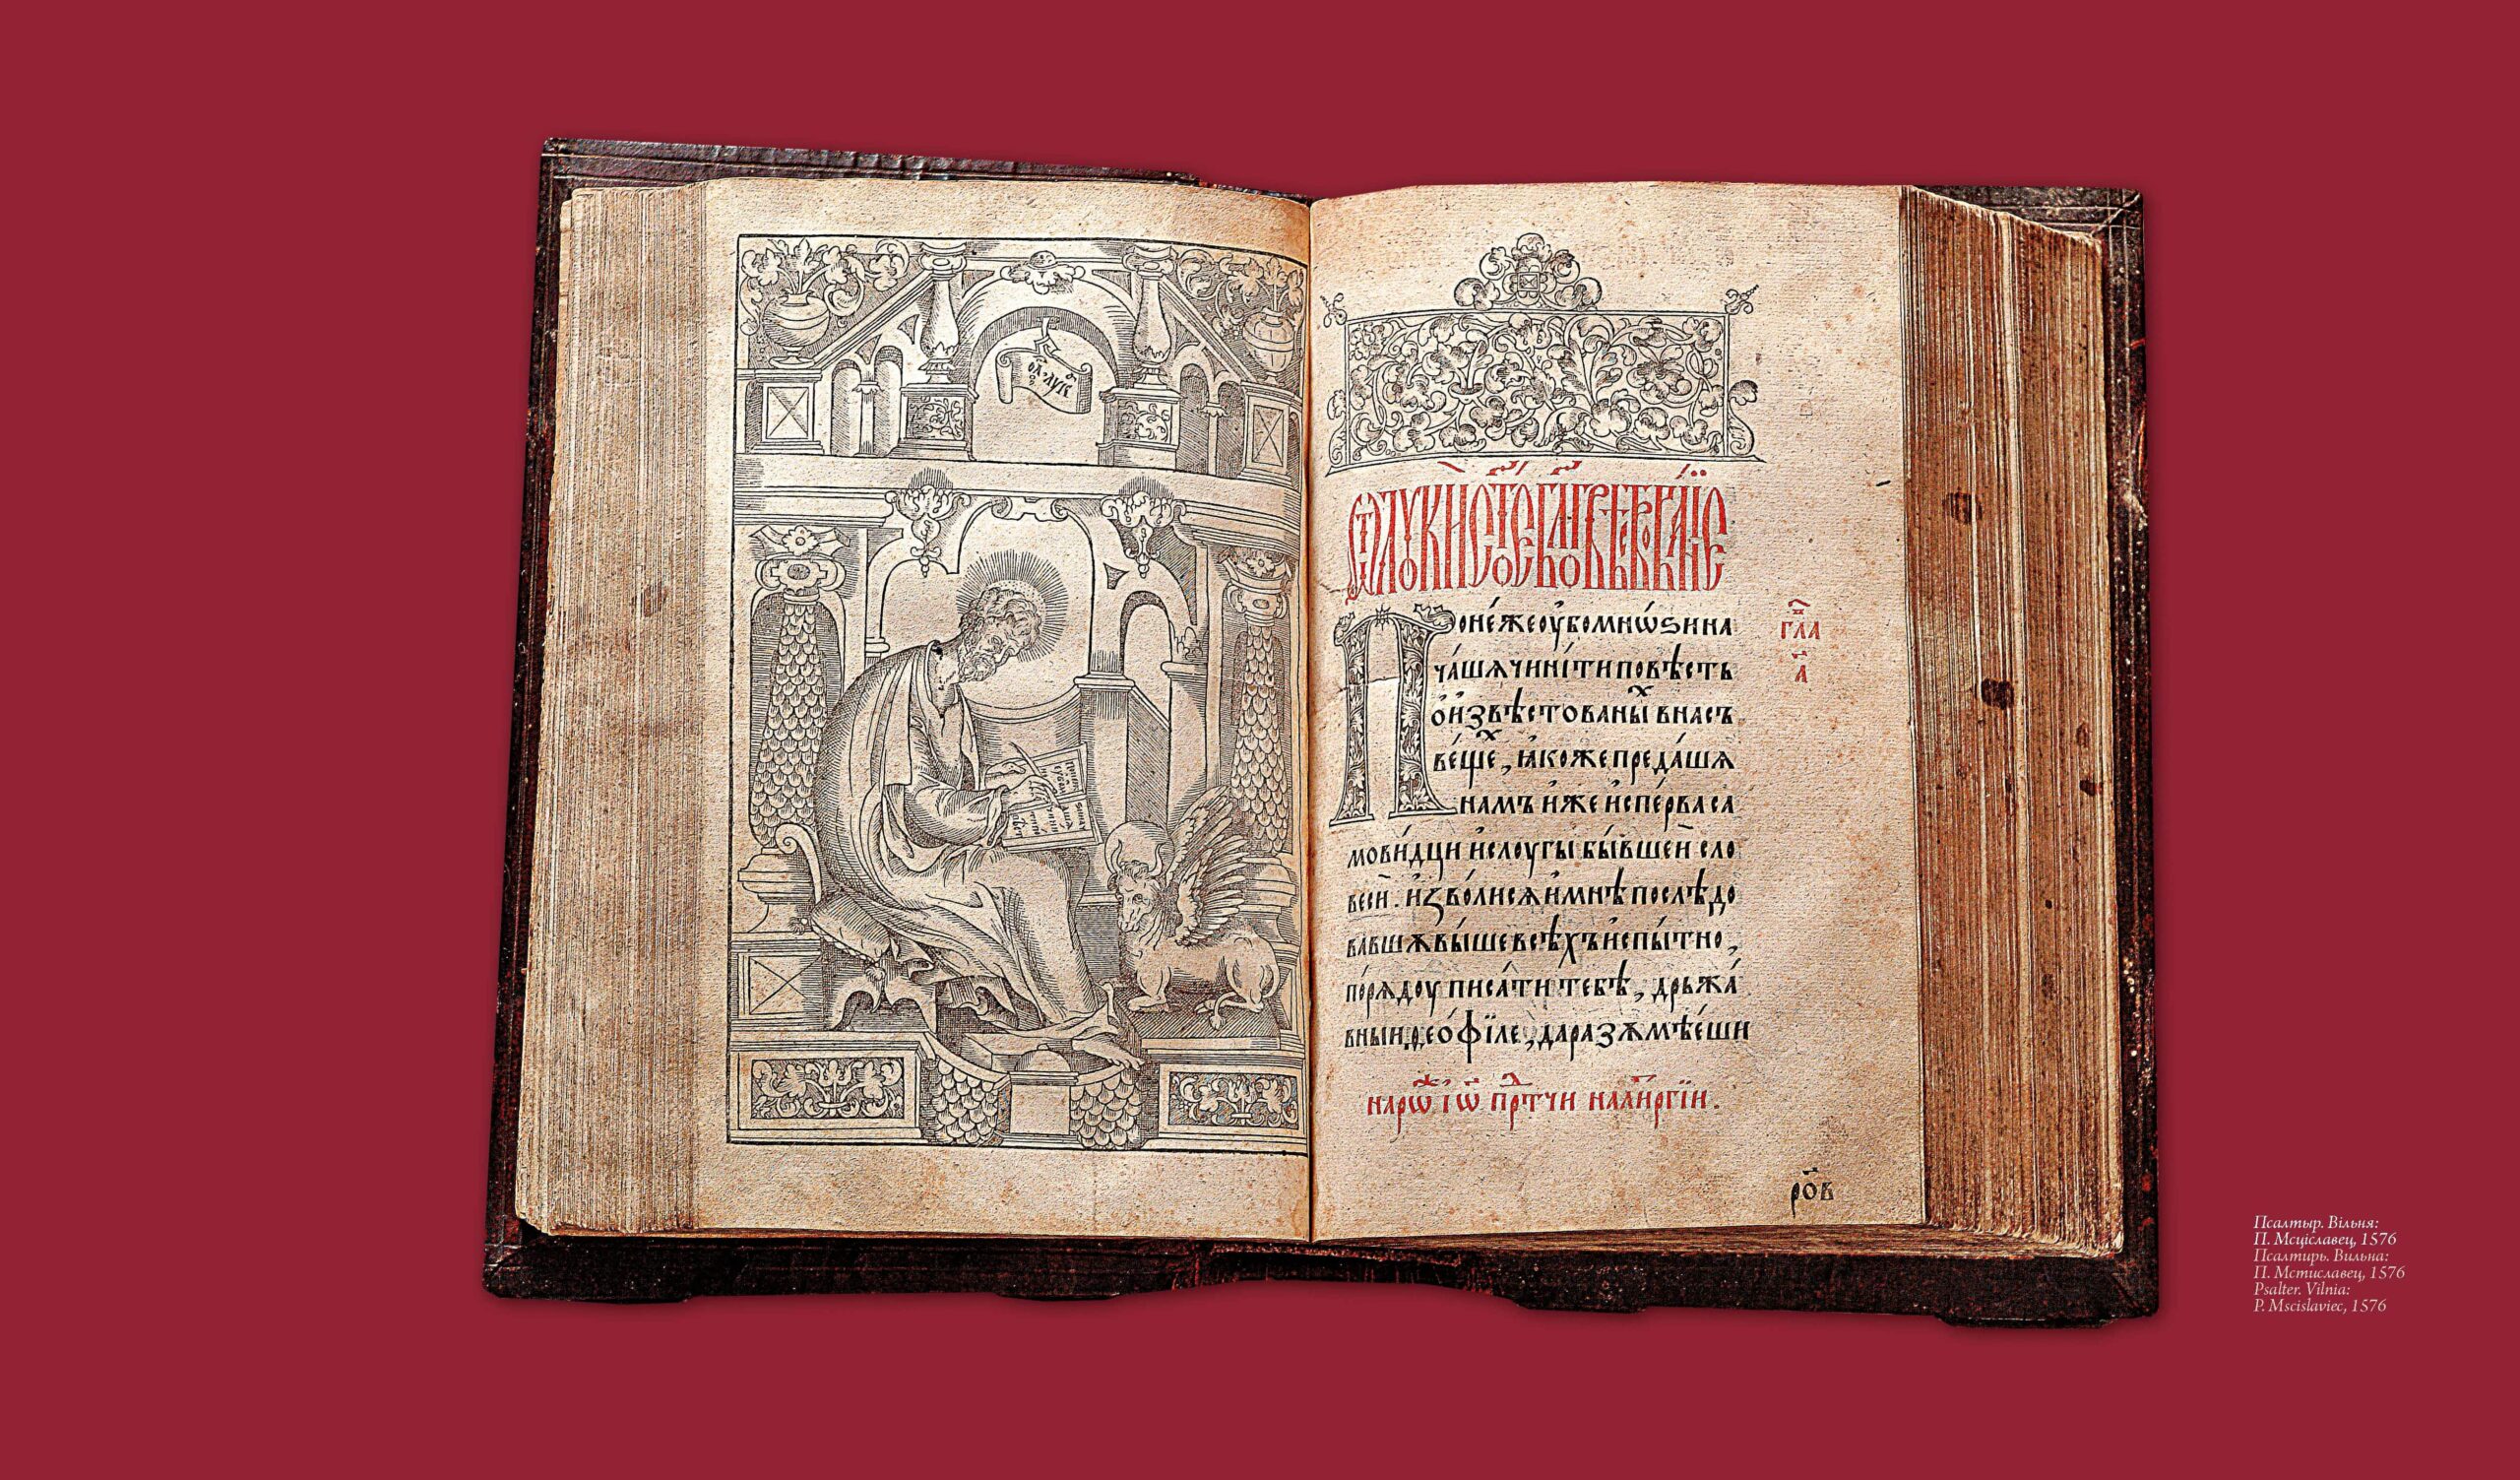 Понеⷤ́же оу҆́бо мно́ѕи на
ча́шѧ чини́ти по́вѣсть
ѡ҆ и҆звѣ́стованыⷯ в насъ
ве́щеⷯ, ꙗ҆́коже преда́шѧ
намъ и҆́же и҆спе́рва са
мови́дци и҆ слоугы бы́вшеи сло
веси. и҆зво́лисѧ и҆ мнѣ послѣдо
вавшꙋ вы́ше всѣхъ и҆спы́тно,
по́рѧдоу писа́ти тебѣ, дрьжа́
вныи ѳео́филе, да разꙋмѣ́еши
на роⷤ іѡⷩ҇ прⷣтчи на лиⷮргїи.
роⷡ҇
Псалтыр. Вільня:
П. Мсціславец, 1576
Псалтирь. Вильна:
П. Мстиславец, 1576
Psalter. Vilnia:
P. Mscislaviec, 1576